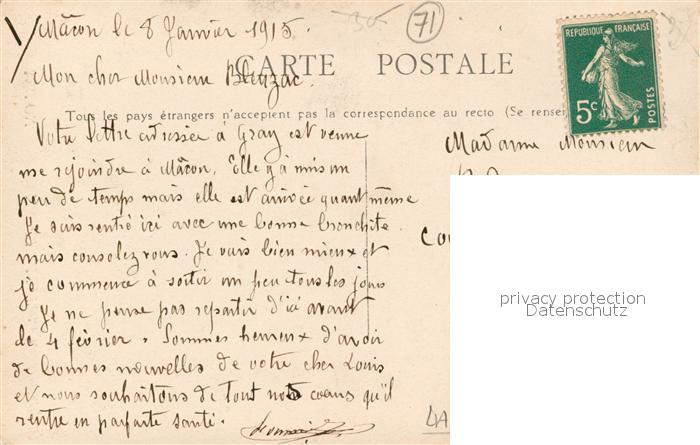 Mâcon le 8 Janvier 1915.
71
RÉPUBLIQUE FRANÇAISE
5c
POSTES
CARTE POSTALE
Mon cher Monsieur
Tous les pays étrangers n'acceptent pas la correspondance au recto (Se renser
Votre lettre adressée à Gray est venue
me rejoindre à Mâcon. Elle y a mis un
peu de temps mais elle est arrivée quant même
Je suis rentré ici avec une bonne bronchite
mais consolez vous. Je vais bien mieux et
je commence à sortir un peu tous les jours
Je ne pense pas repartir d'ici avant
le 4 février. Sommes heureux d'avoir
de bonnes nouvelles de votre cher Louis
et nous souhaitons de tout notre coeurs qu'il
rentre en parfaite santé.
Madame Monsieur
privacy protection
Datenschutz